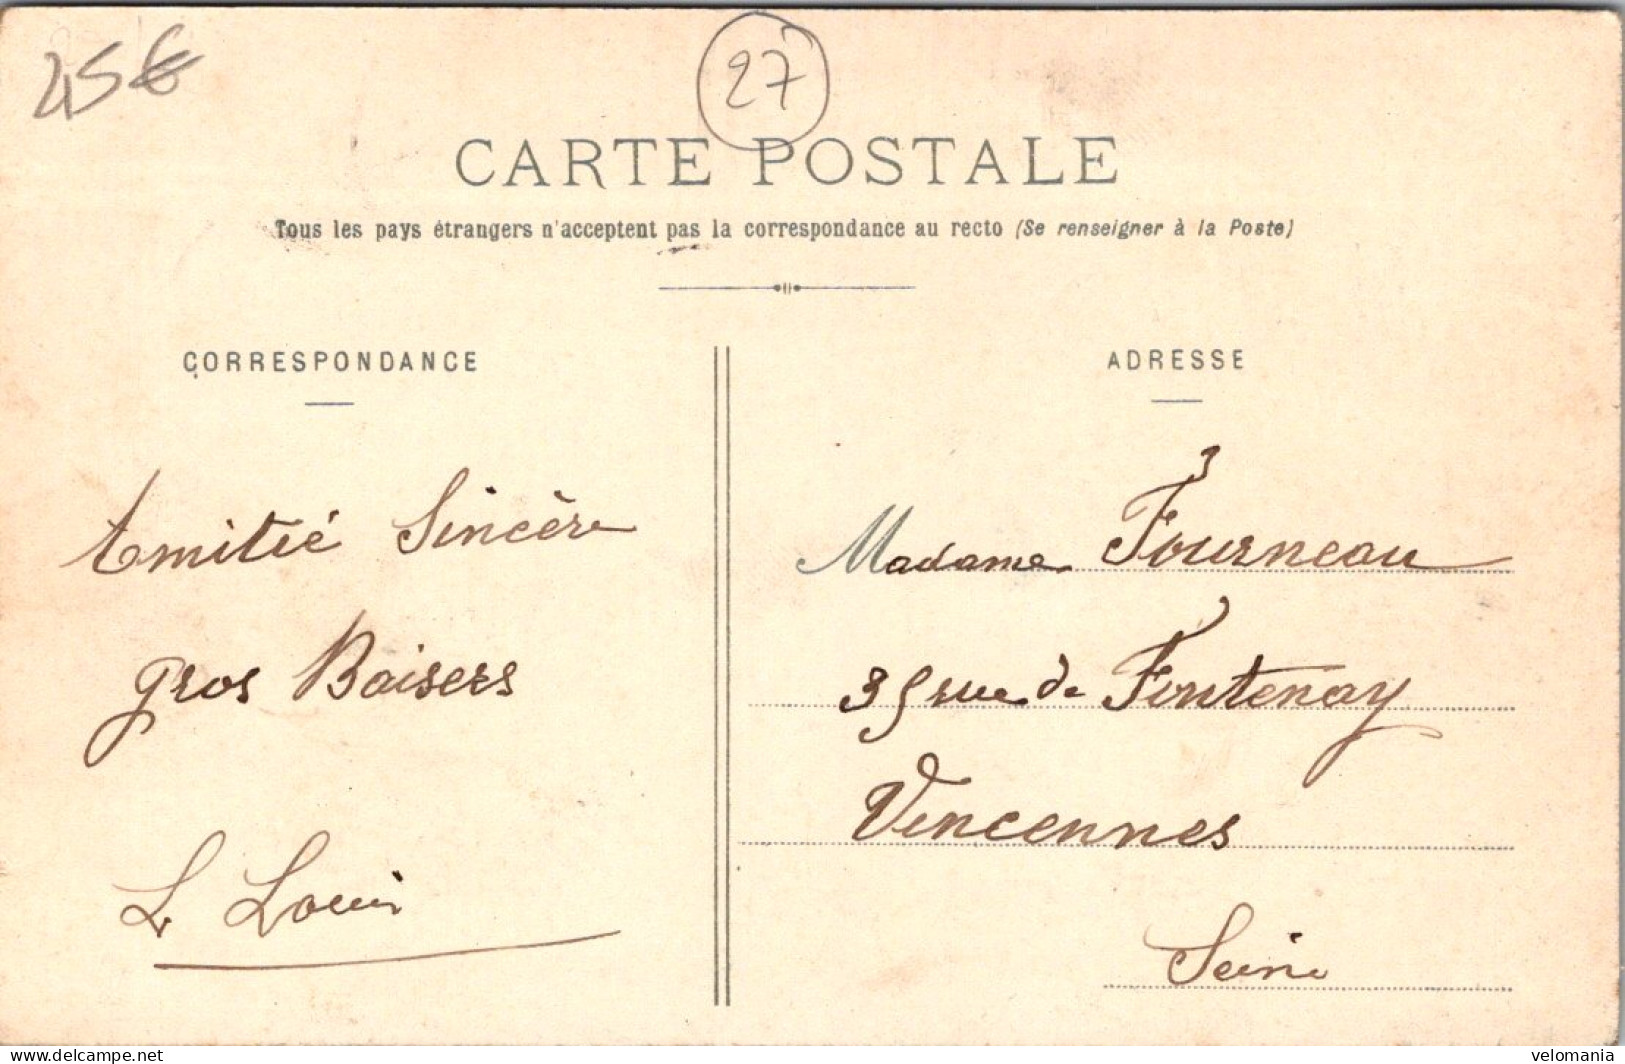 45€
27
CARTE POSTALE
Tous les pays étrangers n'acceptent pas la correspondance au recto (Se renseigner à la Poste)
CORRESPONDANCE
Amitié Sincère
gros Baisers
L Louis
ADRESSE
Madame Fourneau
35 rue de Fontenay
Vincennes
Seine
www.delcampe.net
velomania